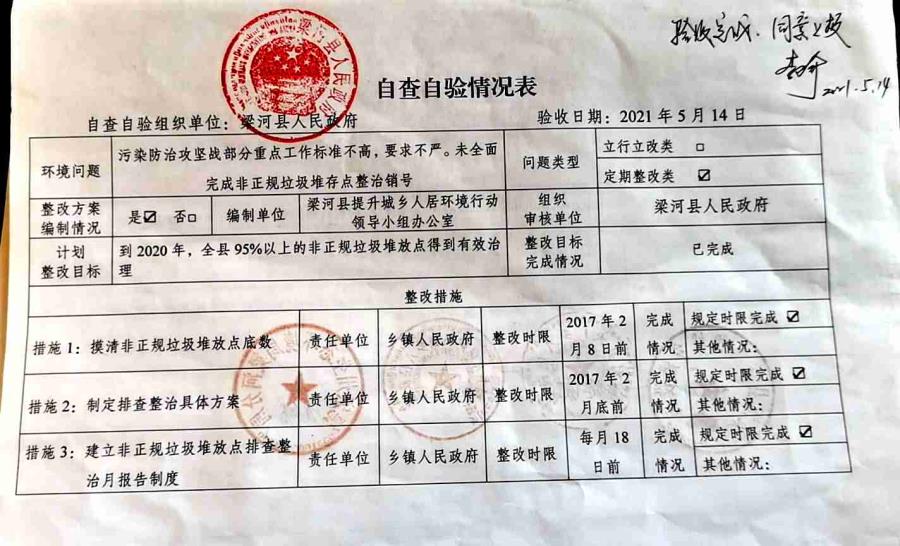 验收完成，同意上报
2021.5.14
梁河县人民政府
自查自验情况表
自查自验组织单位：梁河县人民政府 验收日期：2021年5月14日
环境问题 污染防治攻坚战部分重点工作标准不高，要求不严。未全面
完成非正规垃圾堆存点整治销号 问题类型 立行立改类 □
定期整改类 ☑
整改方案
编制情况 是☑ 否□ 编制单位 梁河县提升城乡人居环境行动
领导小组办公室 组织
审核单位 梁河县人民政府
计划
整改目标 到2020年，全县95%以上的非正规垃圾堆放点得到有效治
理 整改目标
完成情况 已完成
整改措施
措施1：摸清非正规垃圾堆放点底数 责任单位 乡镇人民政府 整改时限 2017年2
月8日前 完成
情况 规定时限完成 ☑
其他情况：
措施2：制定排查整治具体方案 责任单位 乡镇人民政府 整改时限 2017年2
月底前 完成
情况 规定时限完成 ☑
其他情况：
措施3：建立非正规垃圾堆放点排查整
治月报告制度 责任单位 乡镇人民政府 整改时限 每月18
日前 完成
情况 规定时限完成 ☑
其他情况：